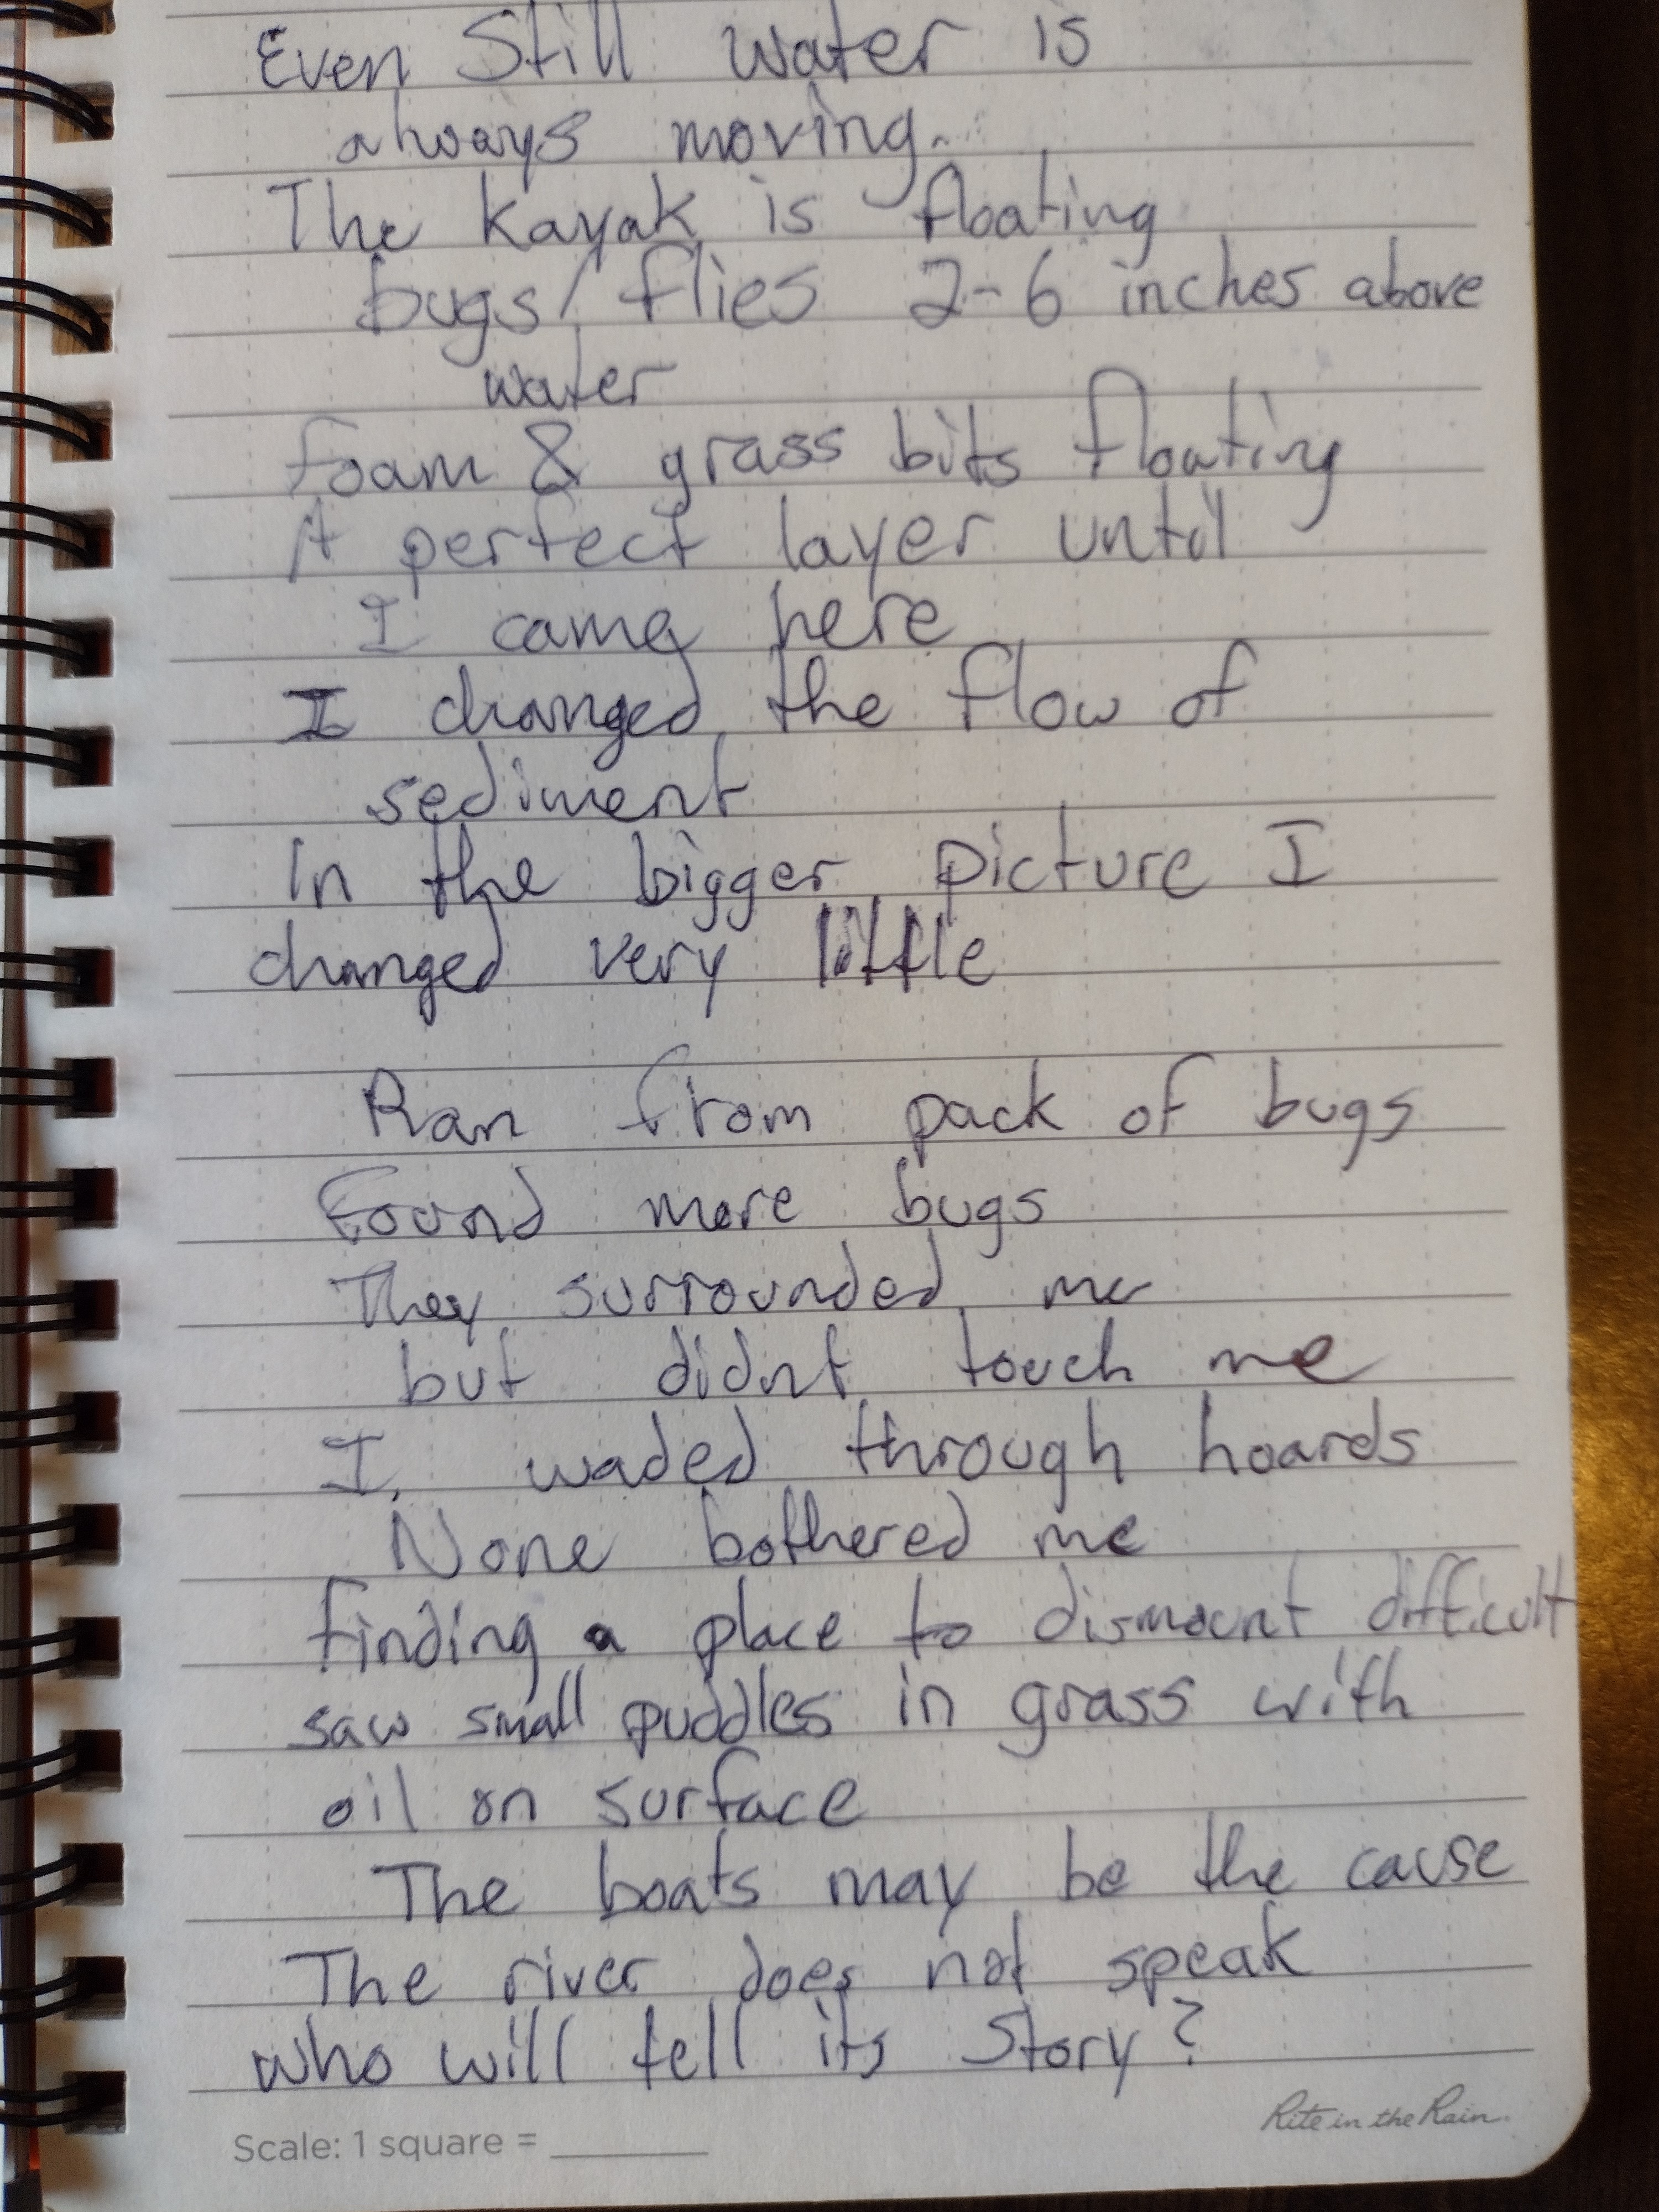 Even Still water is
always moving.
The kayak is floating
bugs/flies 2-6 inches above
water
foam & grass bits floating
A perfect layer until
I came here
I changed the flow of
sediment
In the bigger picture I
changed very little
Ran from pack of bugs
Found more bugs
They surrounded me
but didnt touch me
I waded through hoards
None bothered me
finding a place to dismount difficult
saw small puddles in grass with
oil on surface
The boats may be the cause
The river does not speak
who will tell its Story?
Rite in the Rain.
Scale: 1 square = ________